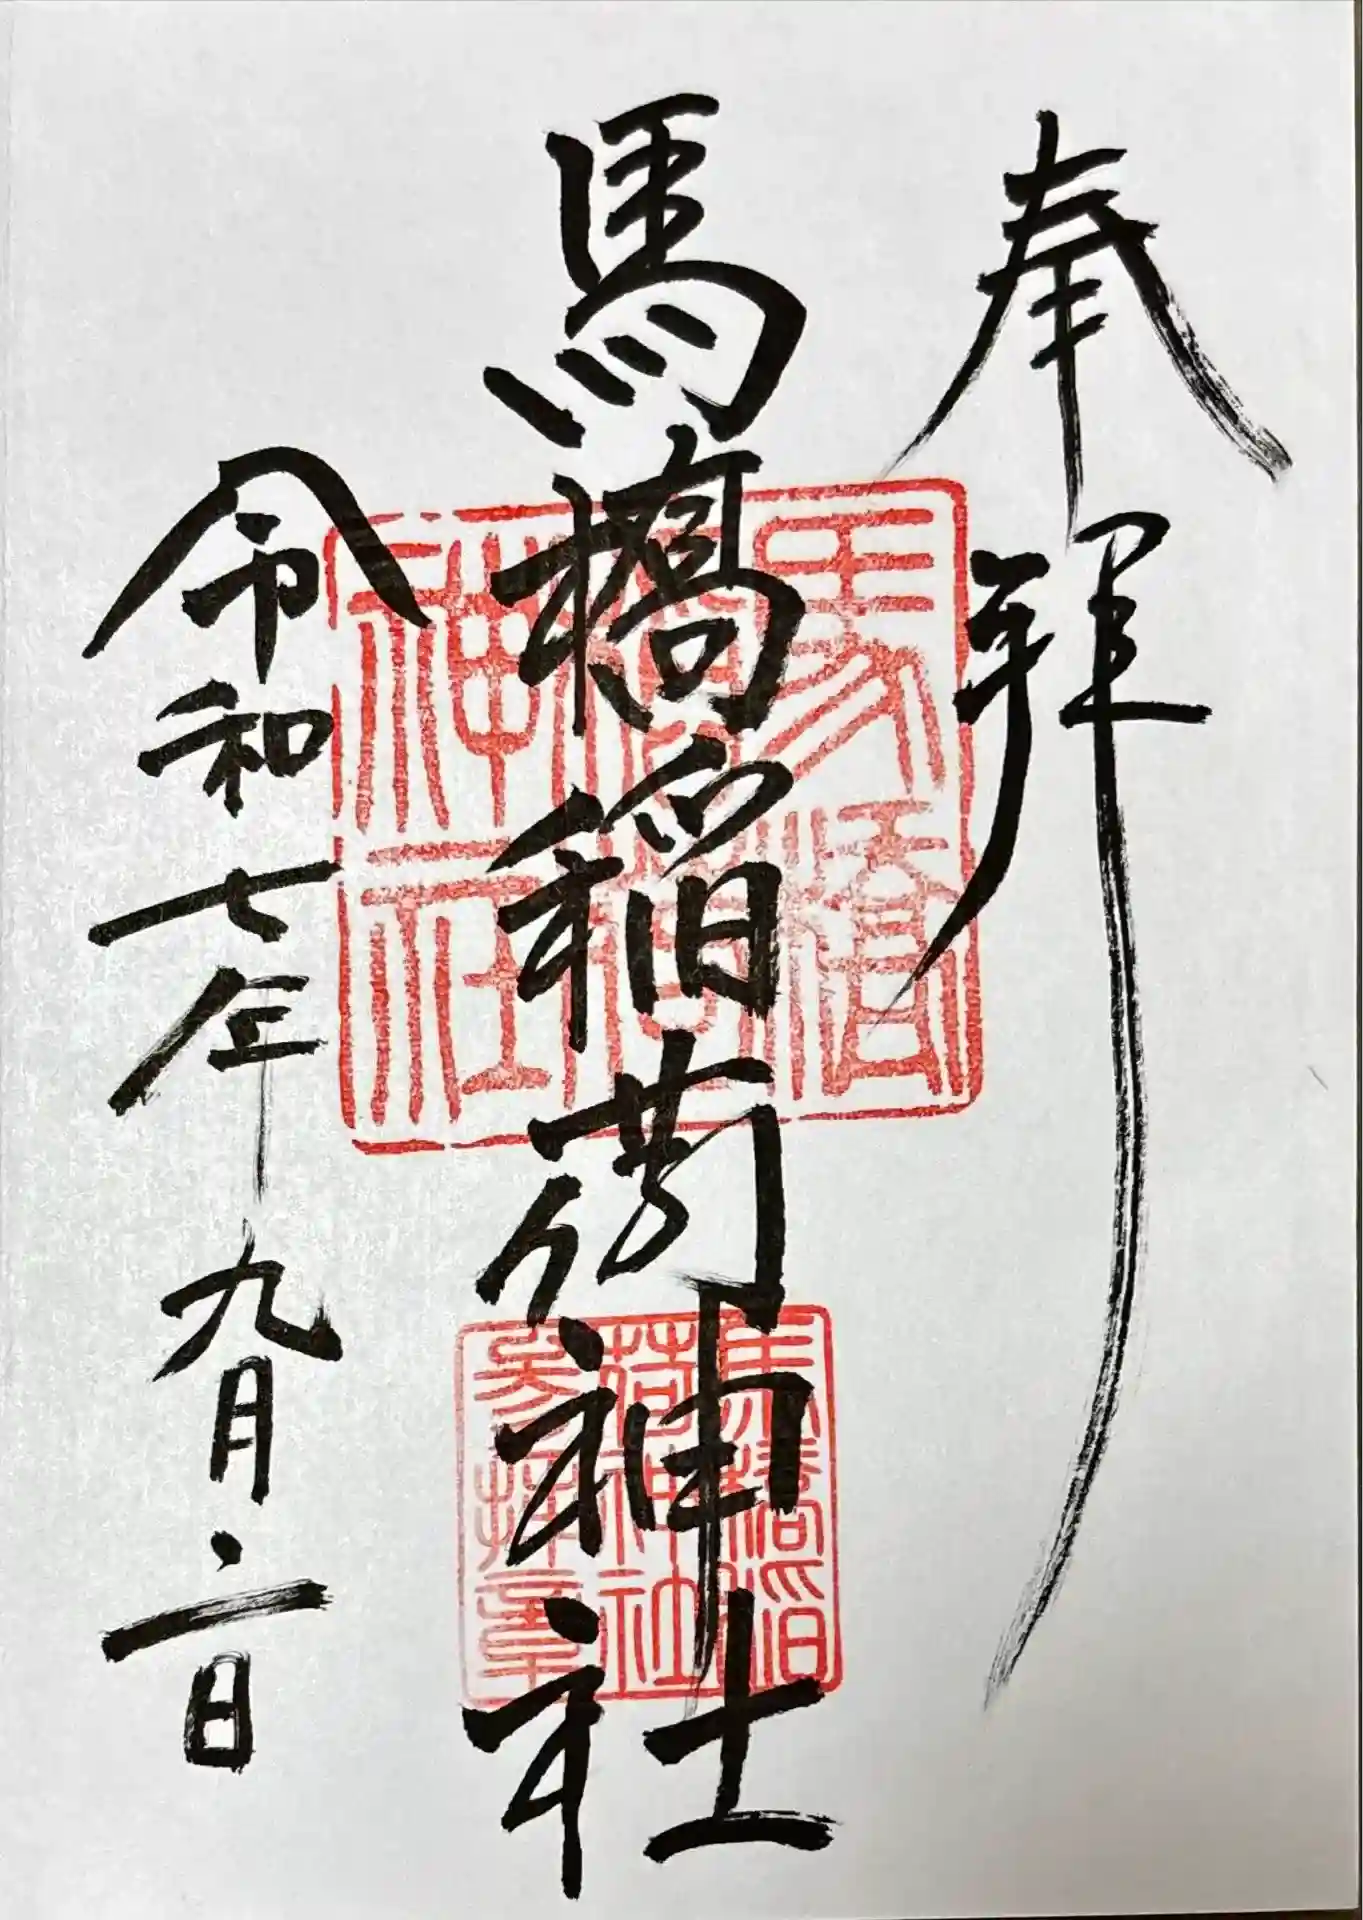 奉拝
馬橋稲荷神社
令和七年九月二日
馬橋
稲荷
神社
馬橋稲
荷神社
参拝章